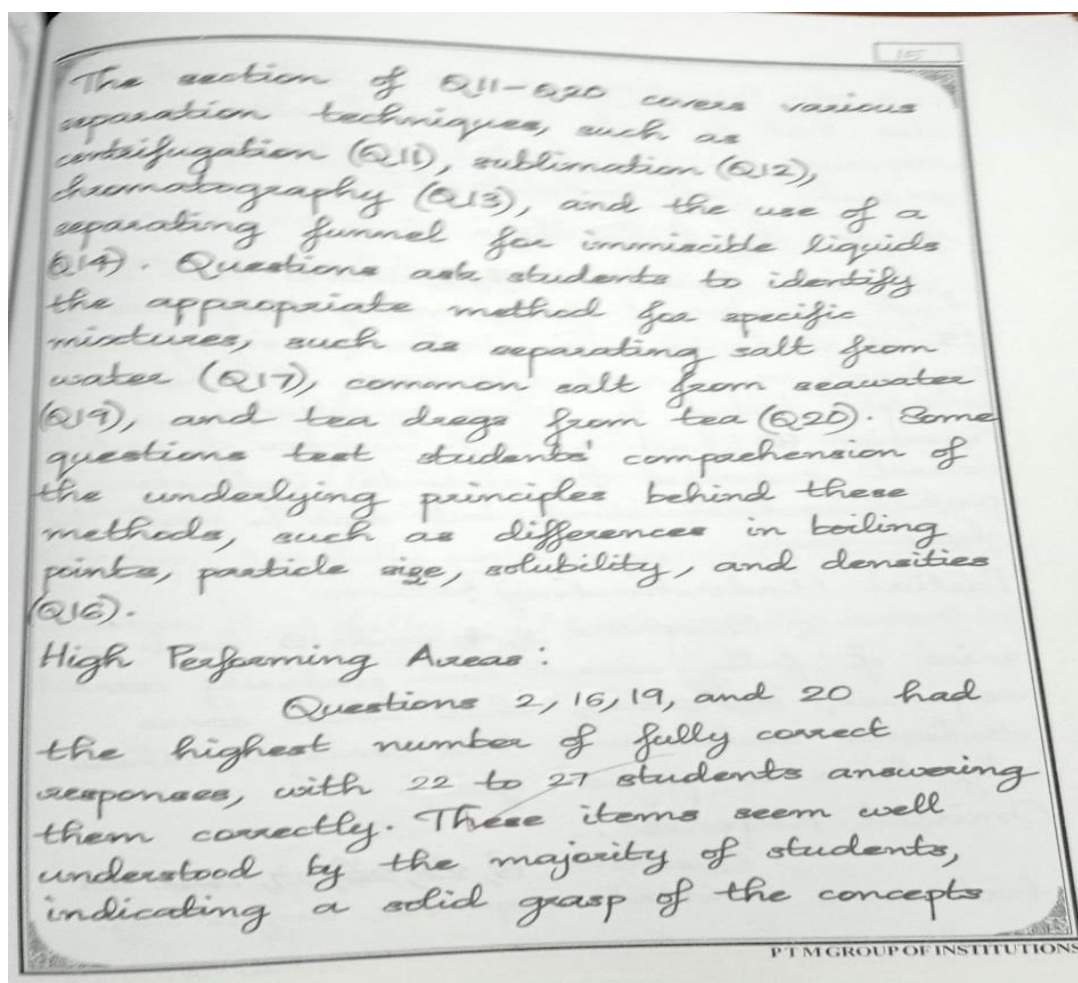 15
The section of Q11-Q20 covers various
separation techniques, such as
centrifugation (Q11), sublimation (Q12),
hromatography (Q13), and the use of a
separating funnel for immiscible liquids
Q14). Questions ask students to identify
the appropriate method for specific
mixtures, such as separating salt from
water (Q17), common salt from seawater
(Q19), and tea dregs from tea (Q20). Some
questions test students' comprehension of
the underlying principles behind these
methods, such as differences in boiling
points, particle size, solubility, and densities
(Q16).
High Performing Areas:
Questions 2, 16, 19, and 20 had
the highest number of fully correct
responses, with 22 to 27 students answering
them correctly. These items seem well
understood by the majority of students,
indicating a solid grasp of the concepts
P T M GROUP OF INSTITUTIONS